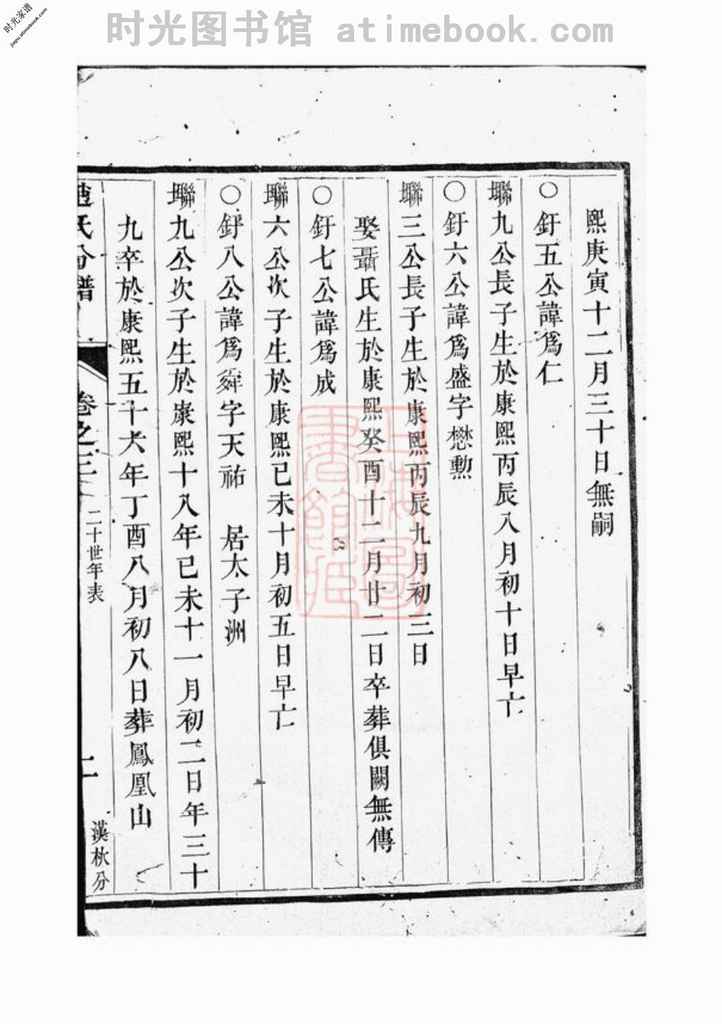 时光家谱
jiapu.atimebook.com
时光图书馆 atimebook.com
熙庚寅十二月三十日無嗣
○釪五公諱爲仁
聯九公長子生於康熙丙辰八月初十日早亡
○釪六公諱爲盛字懋勲
聯三公長子生於康熙丙辰九月初三日
娶聶氏生於康熙癸酉十二月廿二日卒葬俱闕無傳
○釪七公諱爲成
聯六公次子生於康熙己未十月初五日早亡
○釪八公諱爲舜字天祐 居太子洲
聯九公次子生於康熙十八年己未十一月初二日年三十
九卒於康熙五十六年丁酉八月初八日葬鳳凰山
氏分譜
卷之三 二十世年表
漢秋分